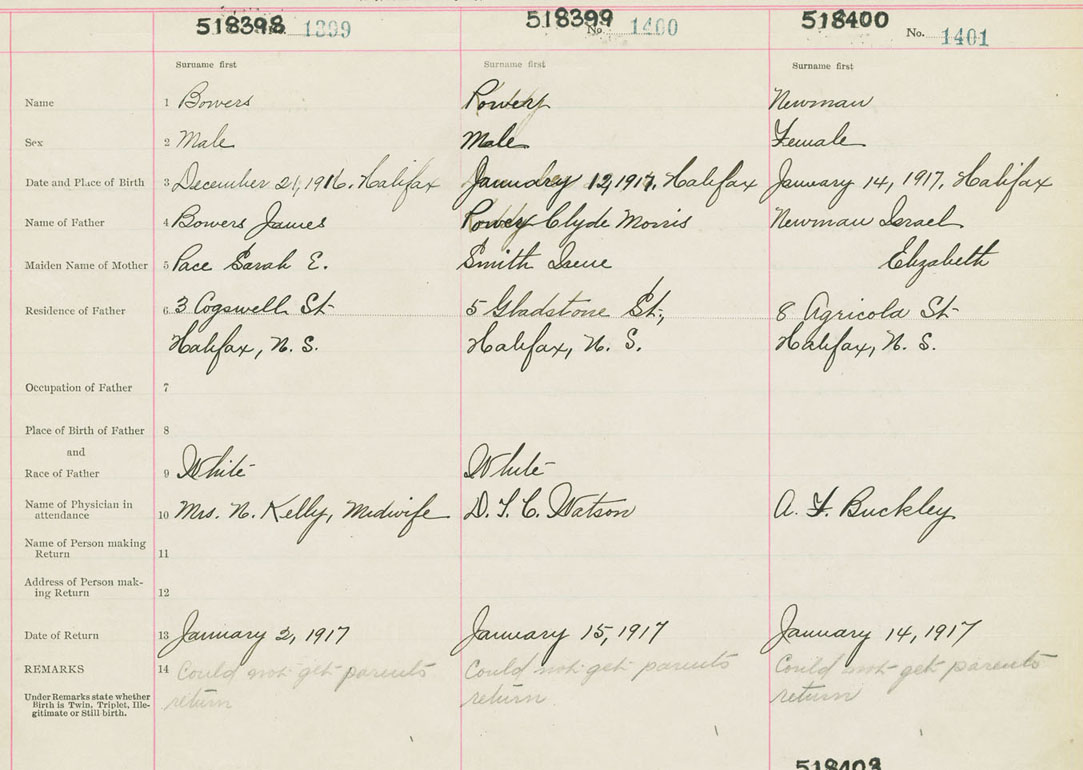 518398 1399 518399 No. 1400 518400 No. 1401
Surname first Surname first Surname first
Name 1 Bowers Powery Newman
Sex 2 Male Male Female
Date and Place of Birth 3 December 21, 1916. Halifax January 12, 1917. Halifax January 14, 1917. Halifax
Name of Father 4 Bowers James Clyde Morris Newman Israel
Maiden Name of Mother 5 Pace Sarah E. Smith Irene Elizabeth
Residence of Father 6 3 Cogswell St 5 Gladstone St., 8 Agricola St
Halifax, N. S. Halifax, N. S. Halifax, N. S.
Occupation of Father 7
Place of Birth of Father 8
and
Race of Father 9 White White
Name of Physician in
attendance 10 Mrs. N. Kelly, Midwife D. T. C. Watson A. F. Buckley
Name of Person making
Return 11
Address of Person mak-
ing Return 12
Date of Return 13 January 2, 1917 January 15, 1917 January 14, 1917
REMARKS 14 Could not get parents Could not get parents Could not get parents
return return return
Under Remarks state whether
Birth is Twin, Triplet, Ille-
gitimate or Still birth.
518403